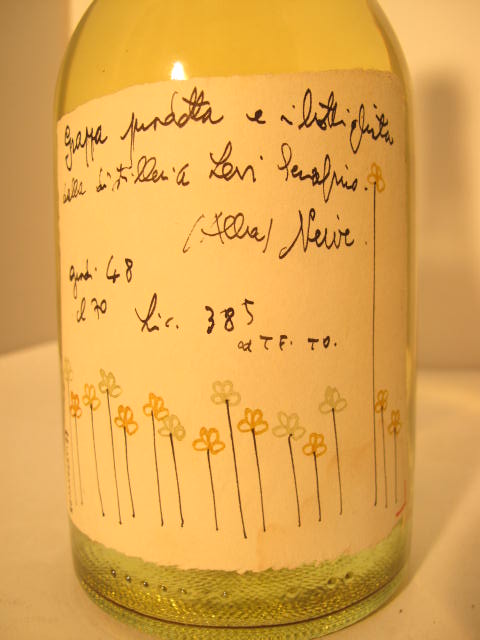 Grappa prodotta e imbottigliata
dalla distilleria Levi Serafino.
(Alba) Neive.
gradi 48
cl 70
Lic. 385
ad T.F. TO.